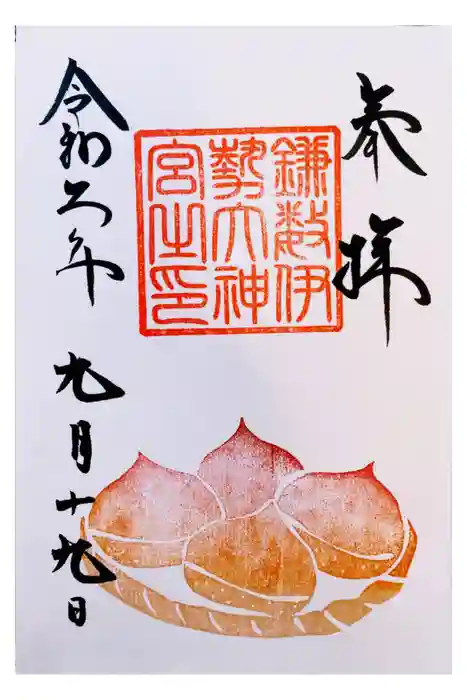 奉拝
鎌数伊
勢大神
宮之印
令和六年 九月十九日